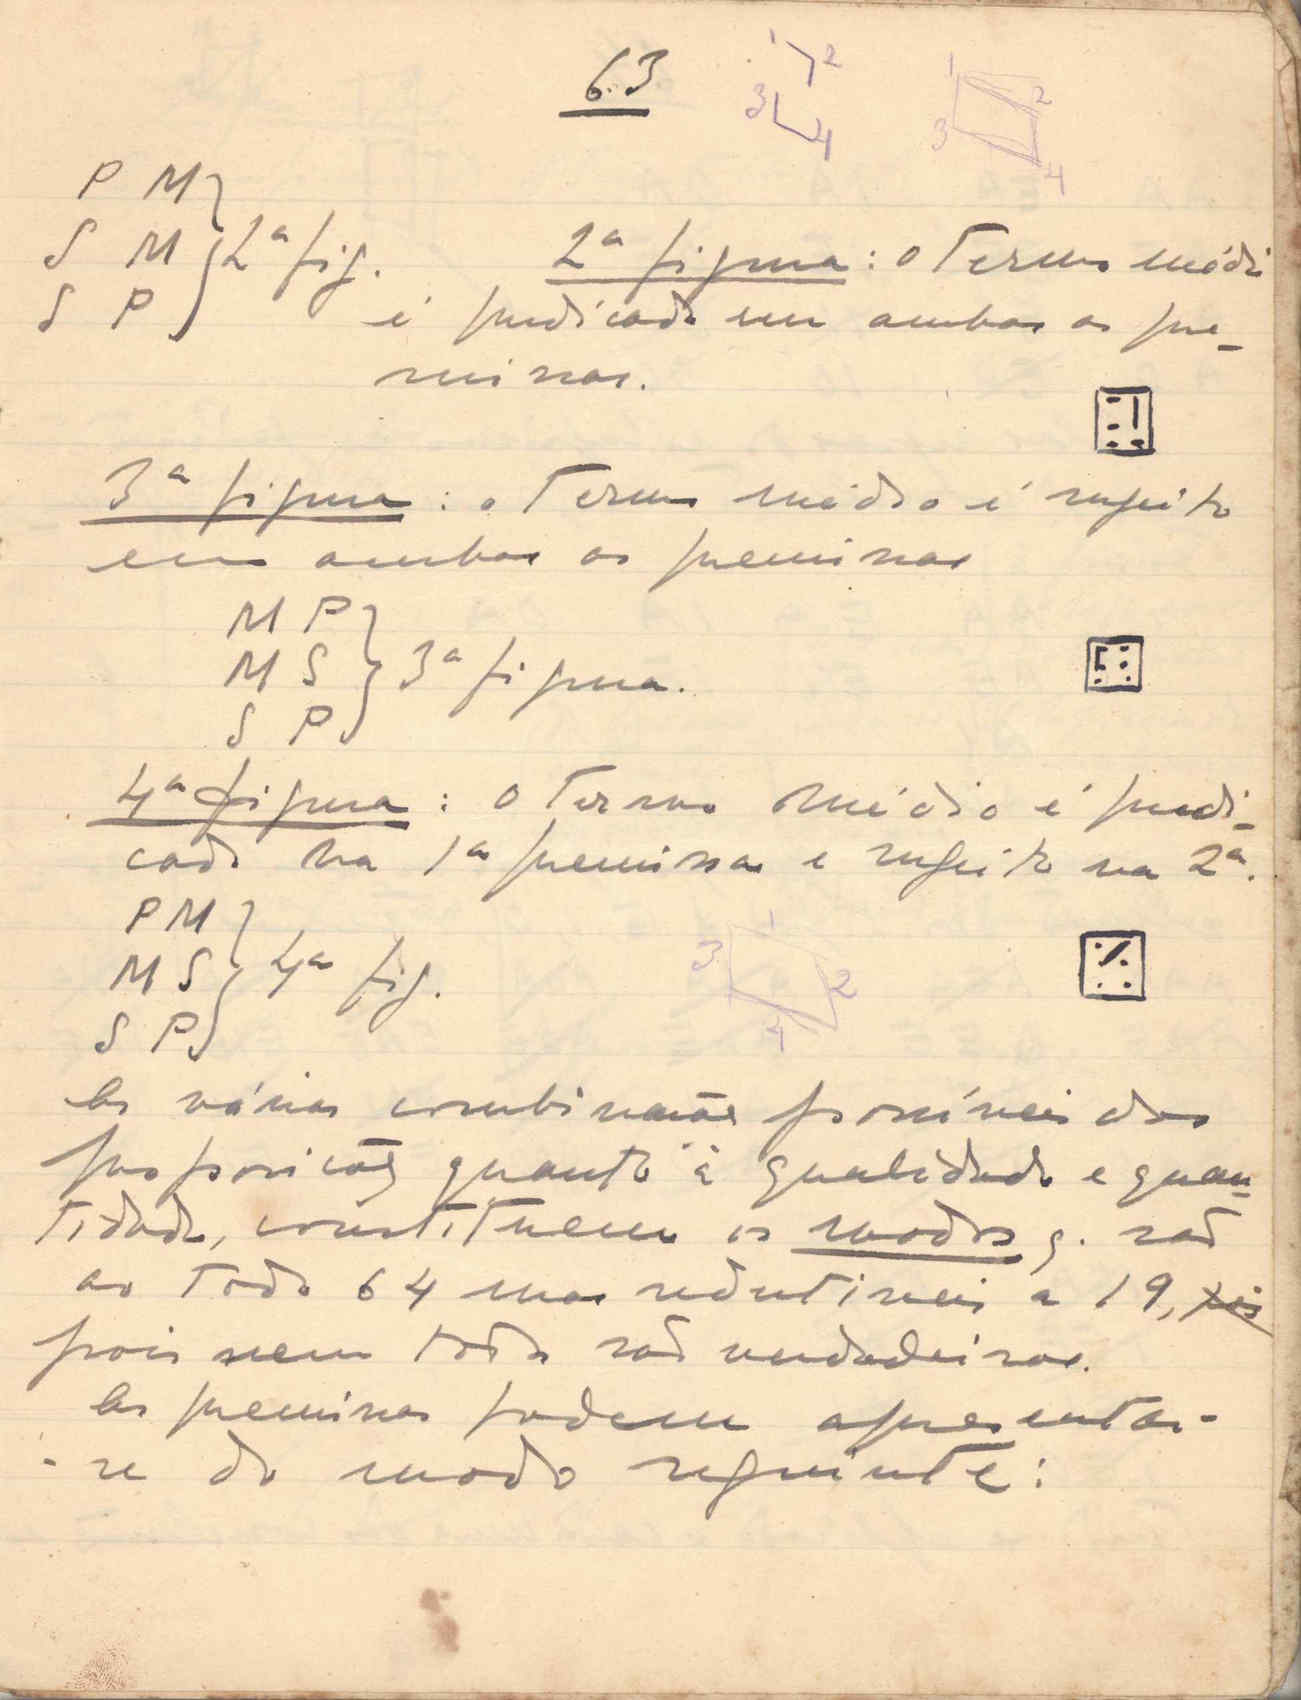 63
1 2
3 4
1 2
3 4
P M
S M } 2ª fig.
S P
2ª figura: o termo médio
é predicado em ambas as pre-
missas.
3ª figura: o termo médio é sujeito
em ambas as premissas
M P
M S } 3ª figura.
S P
4ª figura: o termo médio é predi-
cado na 1ª premissa e sujeito na 2ª.
P M
M S } 4ª fig.
S P
1
3 2
4
As várias combinações possíveis das
proposições quanto à qualidade e quan-
tidade, constituem os modos q. são
ao todo 64 mas redutíveis a 19,
pois nem todos são verdadeiros.
As premissas podem apresentar-
-se do modo seguinte: